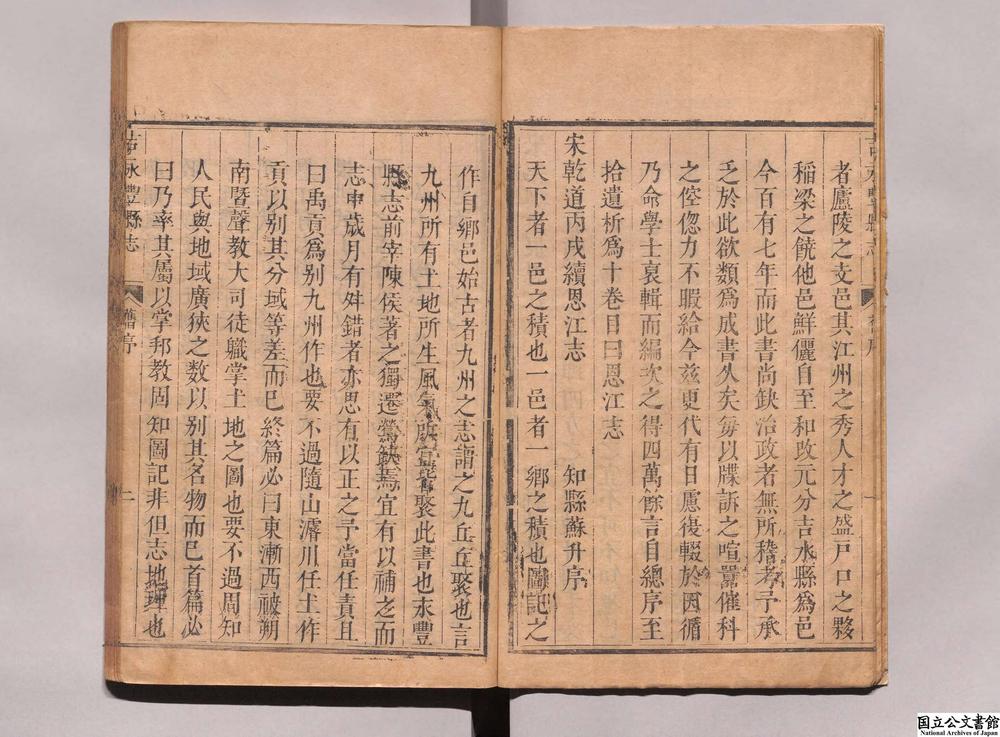 者廬陵之支邑其江州之秀人才之盛戸口之夥
稲梁之饒他邑鮮儷自至和改元分吉水縣為邑
今百有七年而此書尚缺治政者無所稽考予承
乏於此欲類為成書久矣每以牒訴之喧囂催科
之倥傯力不暇給今茲更代有日慮復輟於因循
乃命學士裒輯而編次之得四萬餘言自總序至
拾遺析為十卷目曰恩江志
宋乾道丙戌續恩江志 知縣蘇升序
天下者一邑之積也一邑者一鄉之積也圖記之
作自鄉邑始古者九州之志謂之九丘丘聚也言
九州所有土地所生風氣所宜皆聚此書也永豐
縣志前宰陳侯著之獨遷鶯缺焉宜有以補之而
志中歲月有舛錯者亦思有以正之予當任責且
曰禹貢為別九州作也要不過隨山濬川任土作
貢以別其分域等差而已終篇必曰東漸西被朔
南暨聲教大司徒職掌土地之圖也要不過周知
人民與地域廣狹之数以別其名物而已首篇必
曰乃率其屬以掌邦教周知圖記非但志地理也
吉永豐縣志
舊序
二
国立公文書館
National Archives of Japan